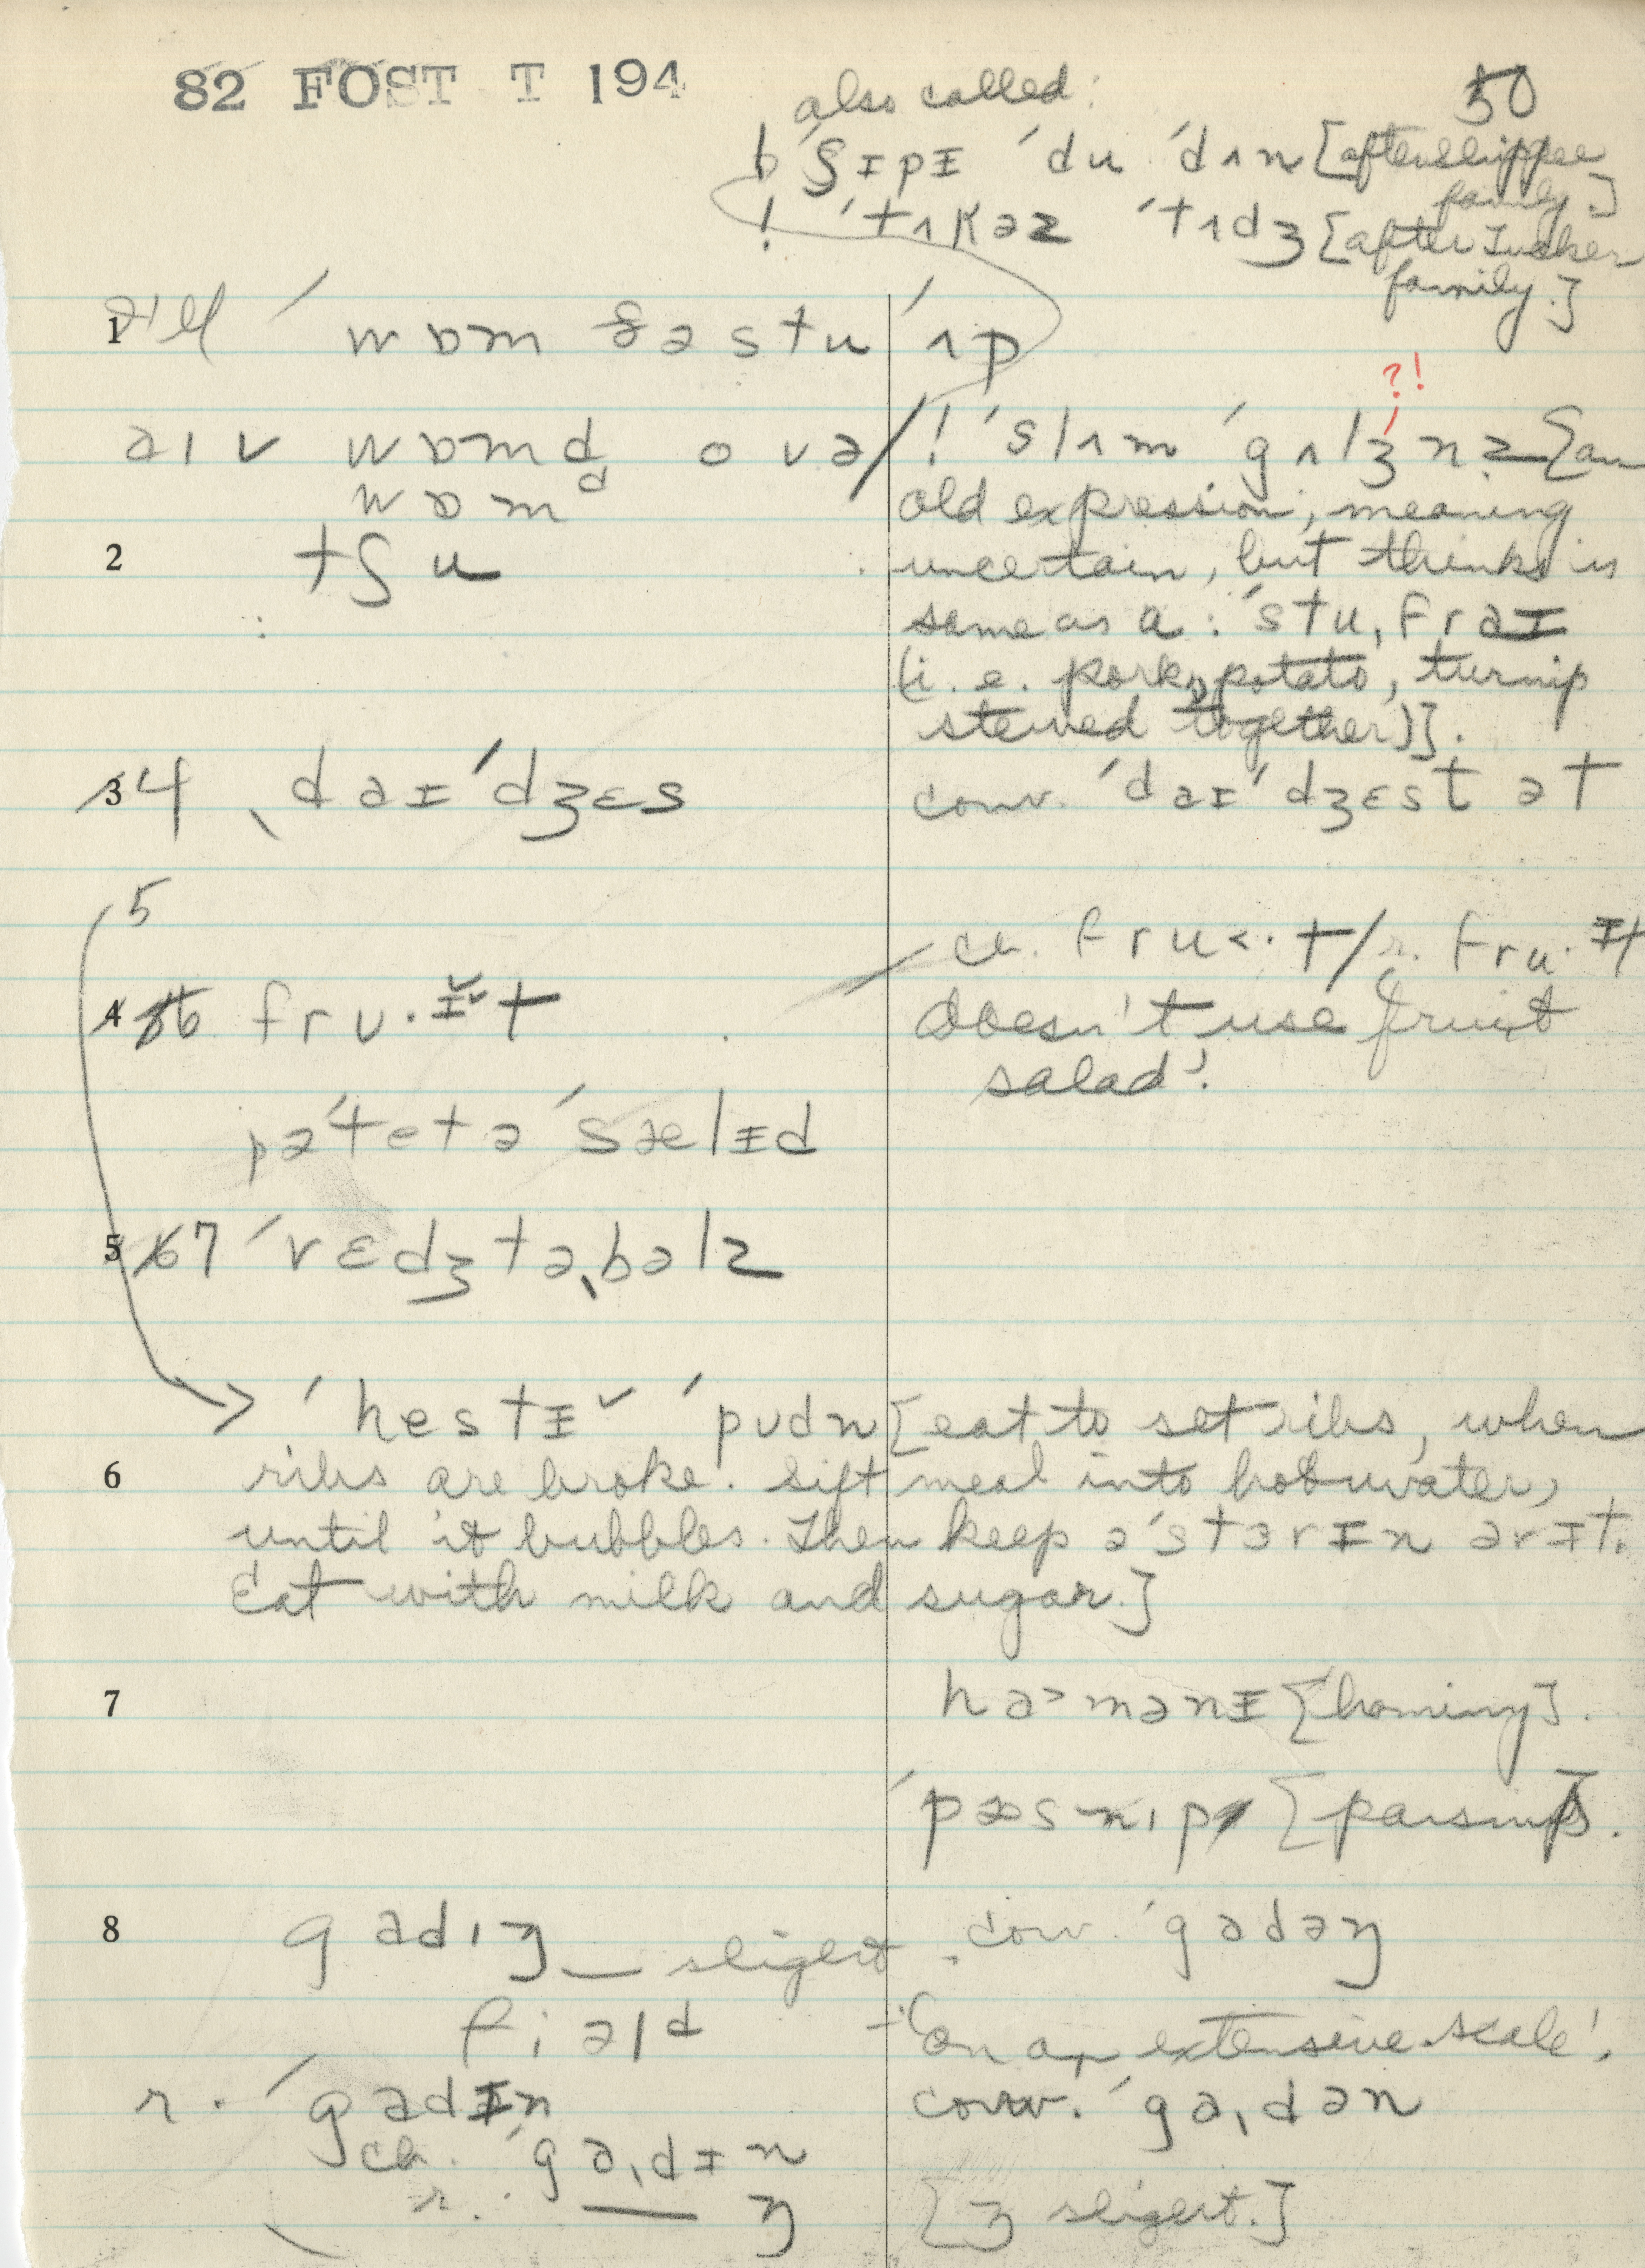 82 FOST T 194
50
also called:
b ˈʃɪpɪ ˈdu ˈdʌn [after Shippee
family.]
! ˈtʌkəz ˈtʌdʒ [after Tucker
family.]
1 ˈwɒm ðə stu ˈʌp
?!
aɪv wɒmd ovə/
wɒmd
! ˈslʌm ˈgʌlʒnz [an
old expression, meaning
uncertain, but thinks is
2 tʃu
same as a: ˈstu, fraɪ
(i.e. pork, potato, turnip
stewed together)].
3 4 ˌdaɪˈdʒɛs
conv. ˈdaɪˈdʒɛst ət
5
ch. fru<·t/r. fru·ɪt
4 6 fru·ɪt
doesn't use 'fruit
salad'.
pəˈtetə ˈsælɪd
5 67 ˈvɛdʒtəˌbəlz
ˈhestɪ ˈpʊdn [eat to set ribs, when
6 ribs are broke. Sift meal into hot water,
until it bubbles. Then keep əˈstɜrɪn əvɪt.
Eat with milk and sugar.]
7 ha>mənɪ [hominy].
ˈpɑsnɪp [parsnip].
8 gadɪŋ — sligert
conv. ˈgadəŋ
fiəld
'on an extensive scale'.
r. ˈgadɪn
conv. ˈgaˌdən
ch. ˈgaˌdɪn
r. — ŋ
[ŋ sligert.]